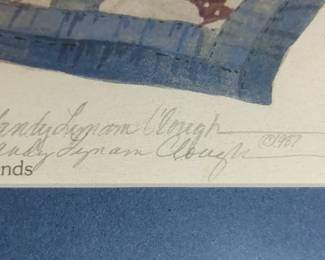 Sandy Lynam Clough
Sandy Lynam Clough ©1987
nds